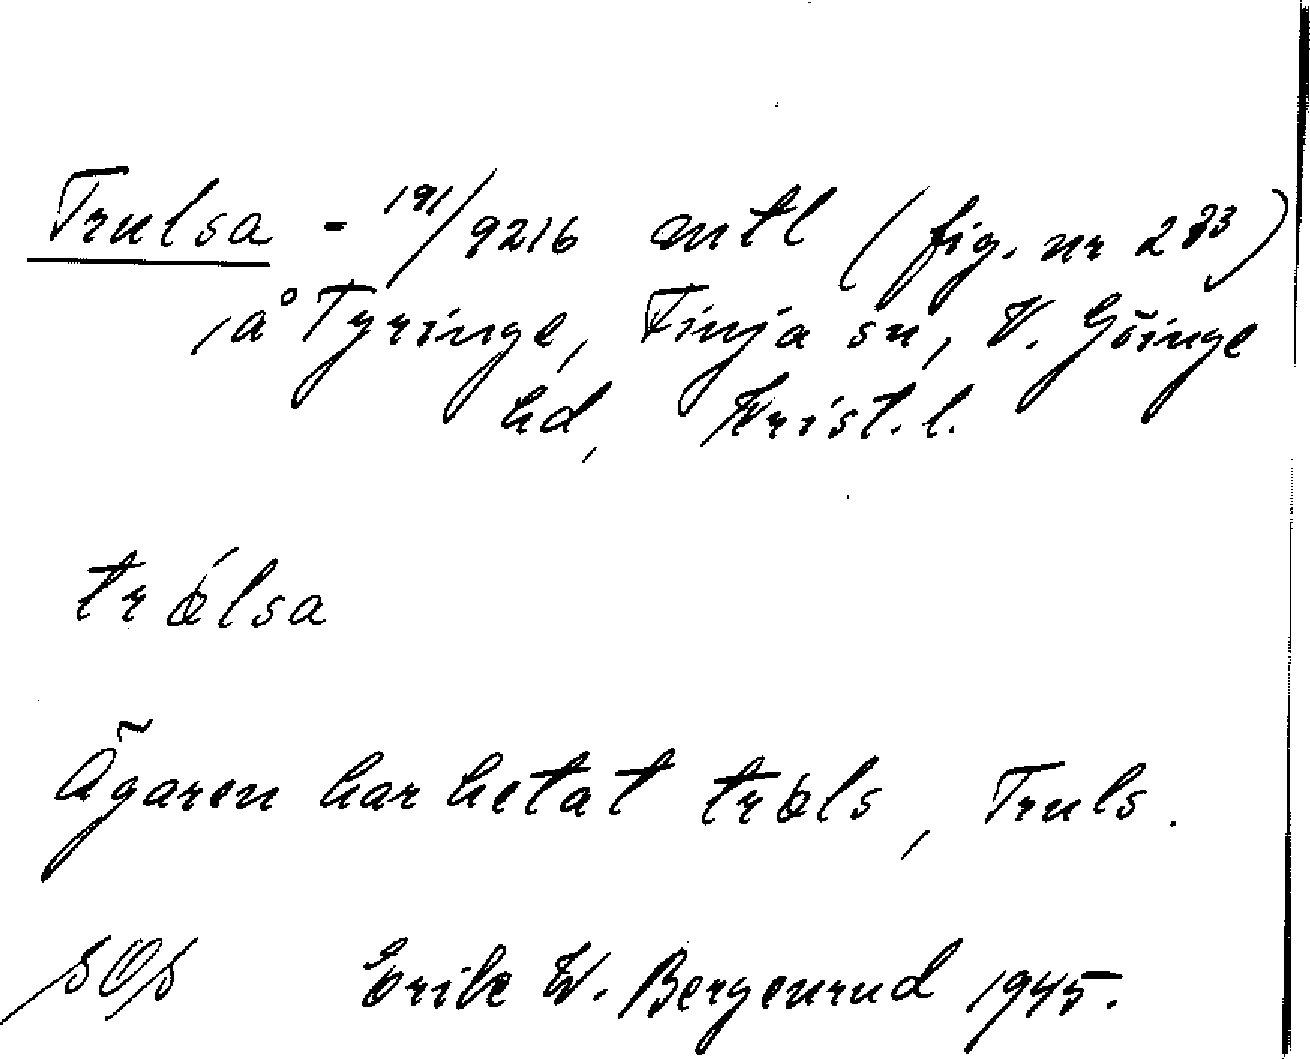 Trulsa - 191/9216 mtl (fig. nr 233)
å Tyringe, Finja sn, V. Göinge
hd, Krist. l.
trólsa
Ägaren har hetat trols, Truls.
Erik W. Bergenrud 1945.